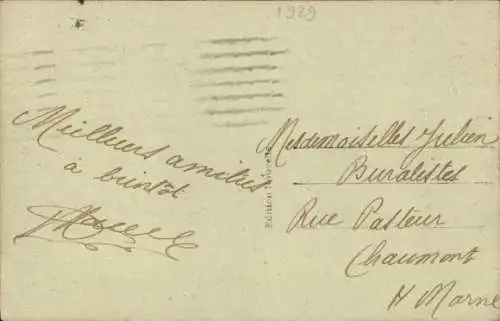 1929
Meilleurs amitiés
à bientôt
Mesdemoiselles Julien
Buralistes
Rue Pasteur
Chaumont
H Marne
Edition